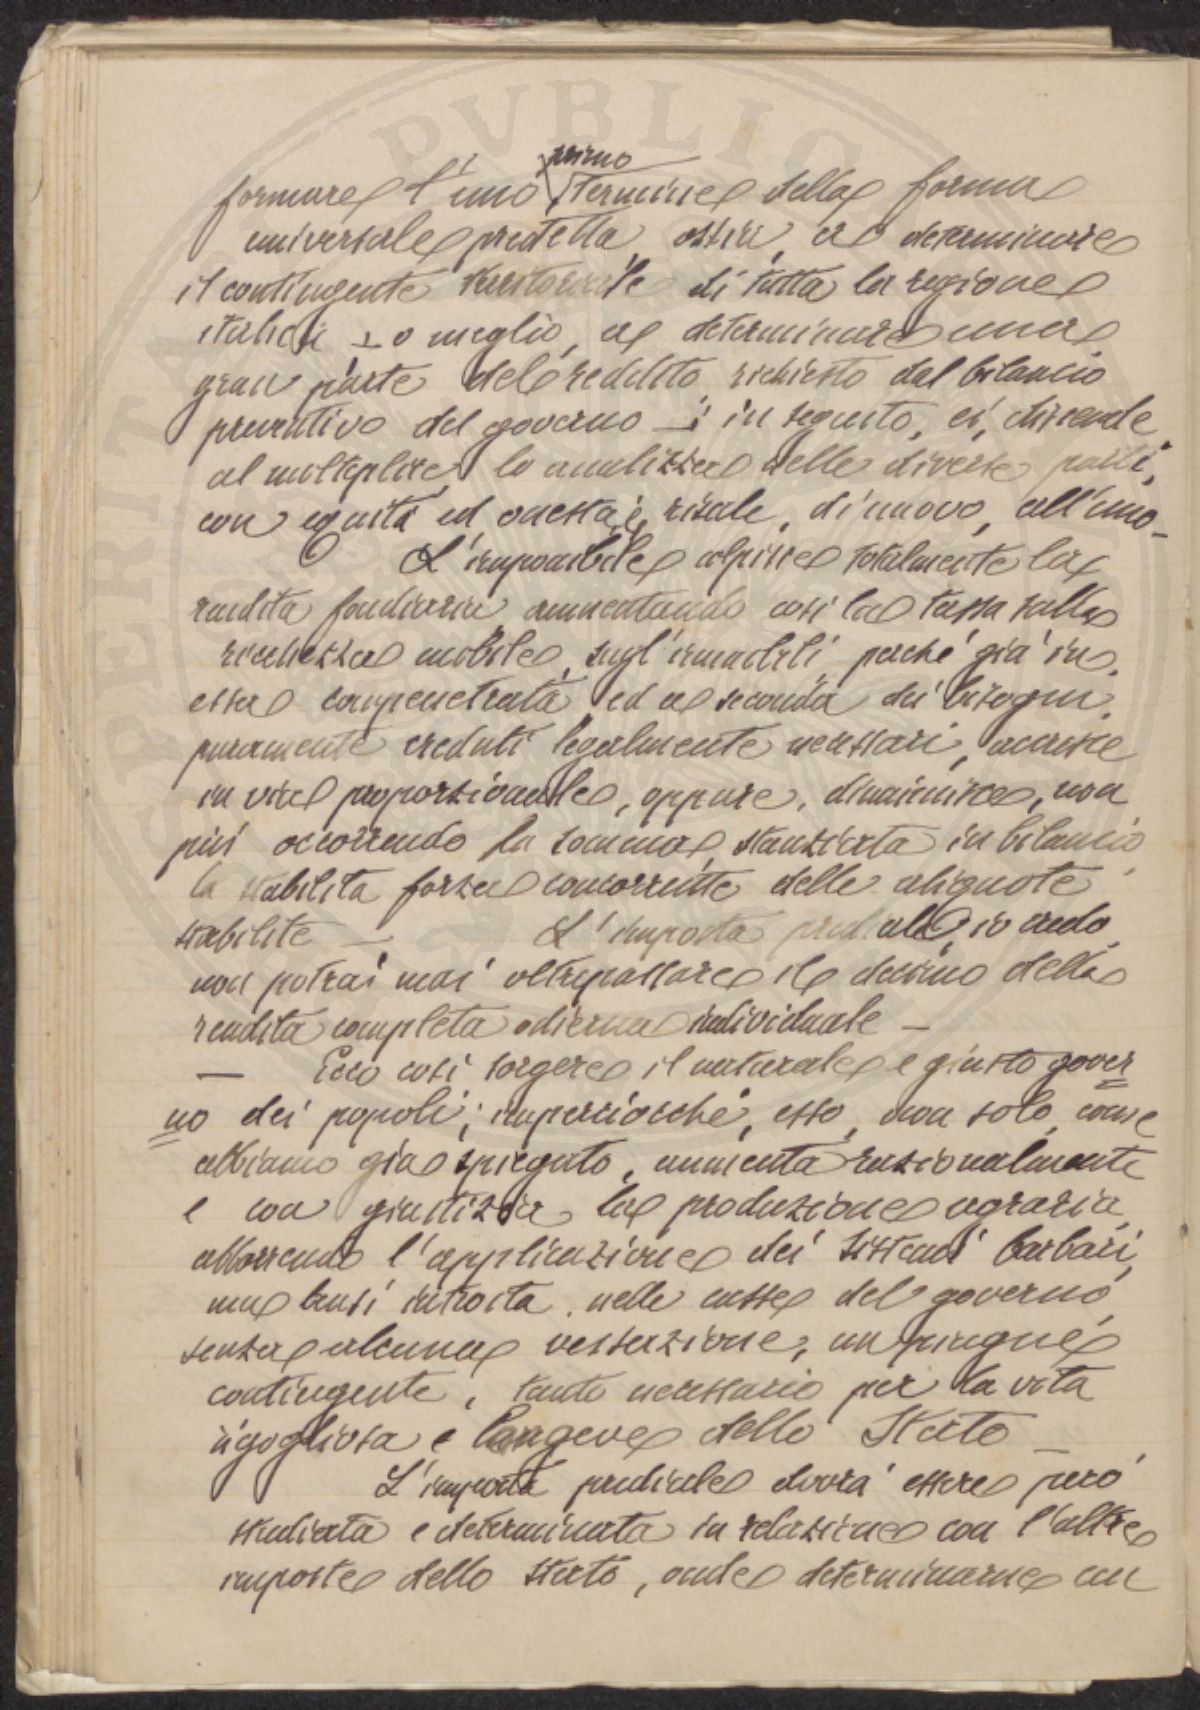 formare l'uno primo termine della forma
universale predetta, ossia, a determinare
il contingente territoriale di tutta la regione
italica — o meglio, a determinare una
gran parte del reddito richiesto dal bilancio
preventivo del governo —; in seguito, ei, discende
al molteplice, lo analizza nelle diverse parti,
con equità ed onestà; e, risale, di nuovo, all'uno —
L'imponibile colpisce totalmente la
rendita fondiaria, aumentando così la tassa sulla
ricchezza mobile, sugl'immobili, perché già in
essa compenetrata, ed a seconda dei bisogni,
puramente creduti legalmente necessari, accresce
in via proporzionale, oppure, diminuisce, non
più occorrendo la somma stanziata in bilancio,
la stabilita forza concorrente delle aliquote
stabilite — L'imposta prediale, io credo,
non potrai mai oltrepassare il decimo della
rendita completa odierna individuale —
— Ecco così sorgere il naturale e giusto gover
no dei popoli; imperciocché, esso, non solo, come
abbiamo già spiegato, aumenta razionalmente
e con giustizia la produzione agraria,
abborrendo l'applicazione dei sistemi barbari,
ma bensì introita, nelle casse del governo,
senza alcuna vessazione, un pingue
contingente, tanto necessario per la vita
rigogliosa e longeva dello Stato —
L'imposta prediale dovrà essere però
studiata e determinata in relazione con l'altre
imposte dello Stato, onde determinarne un